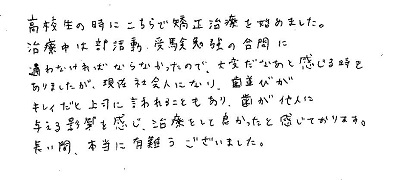 高校生の時にこちらで矯正治療を始めました。
治療中は部活動、受験勉強の合間に
通わなければならなかったので、大変だなあと感じる時も
ありましたが、現在社会人になり、歯並びが
キレイだと上司に言われることもあり、歯が他人に
与える影響を感じ、治療をして良かったと感じております。
長い間、本当に有難うございました。